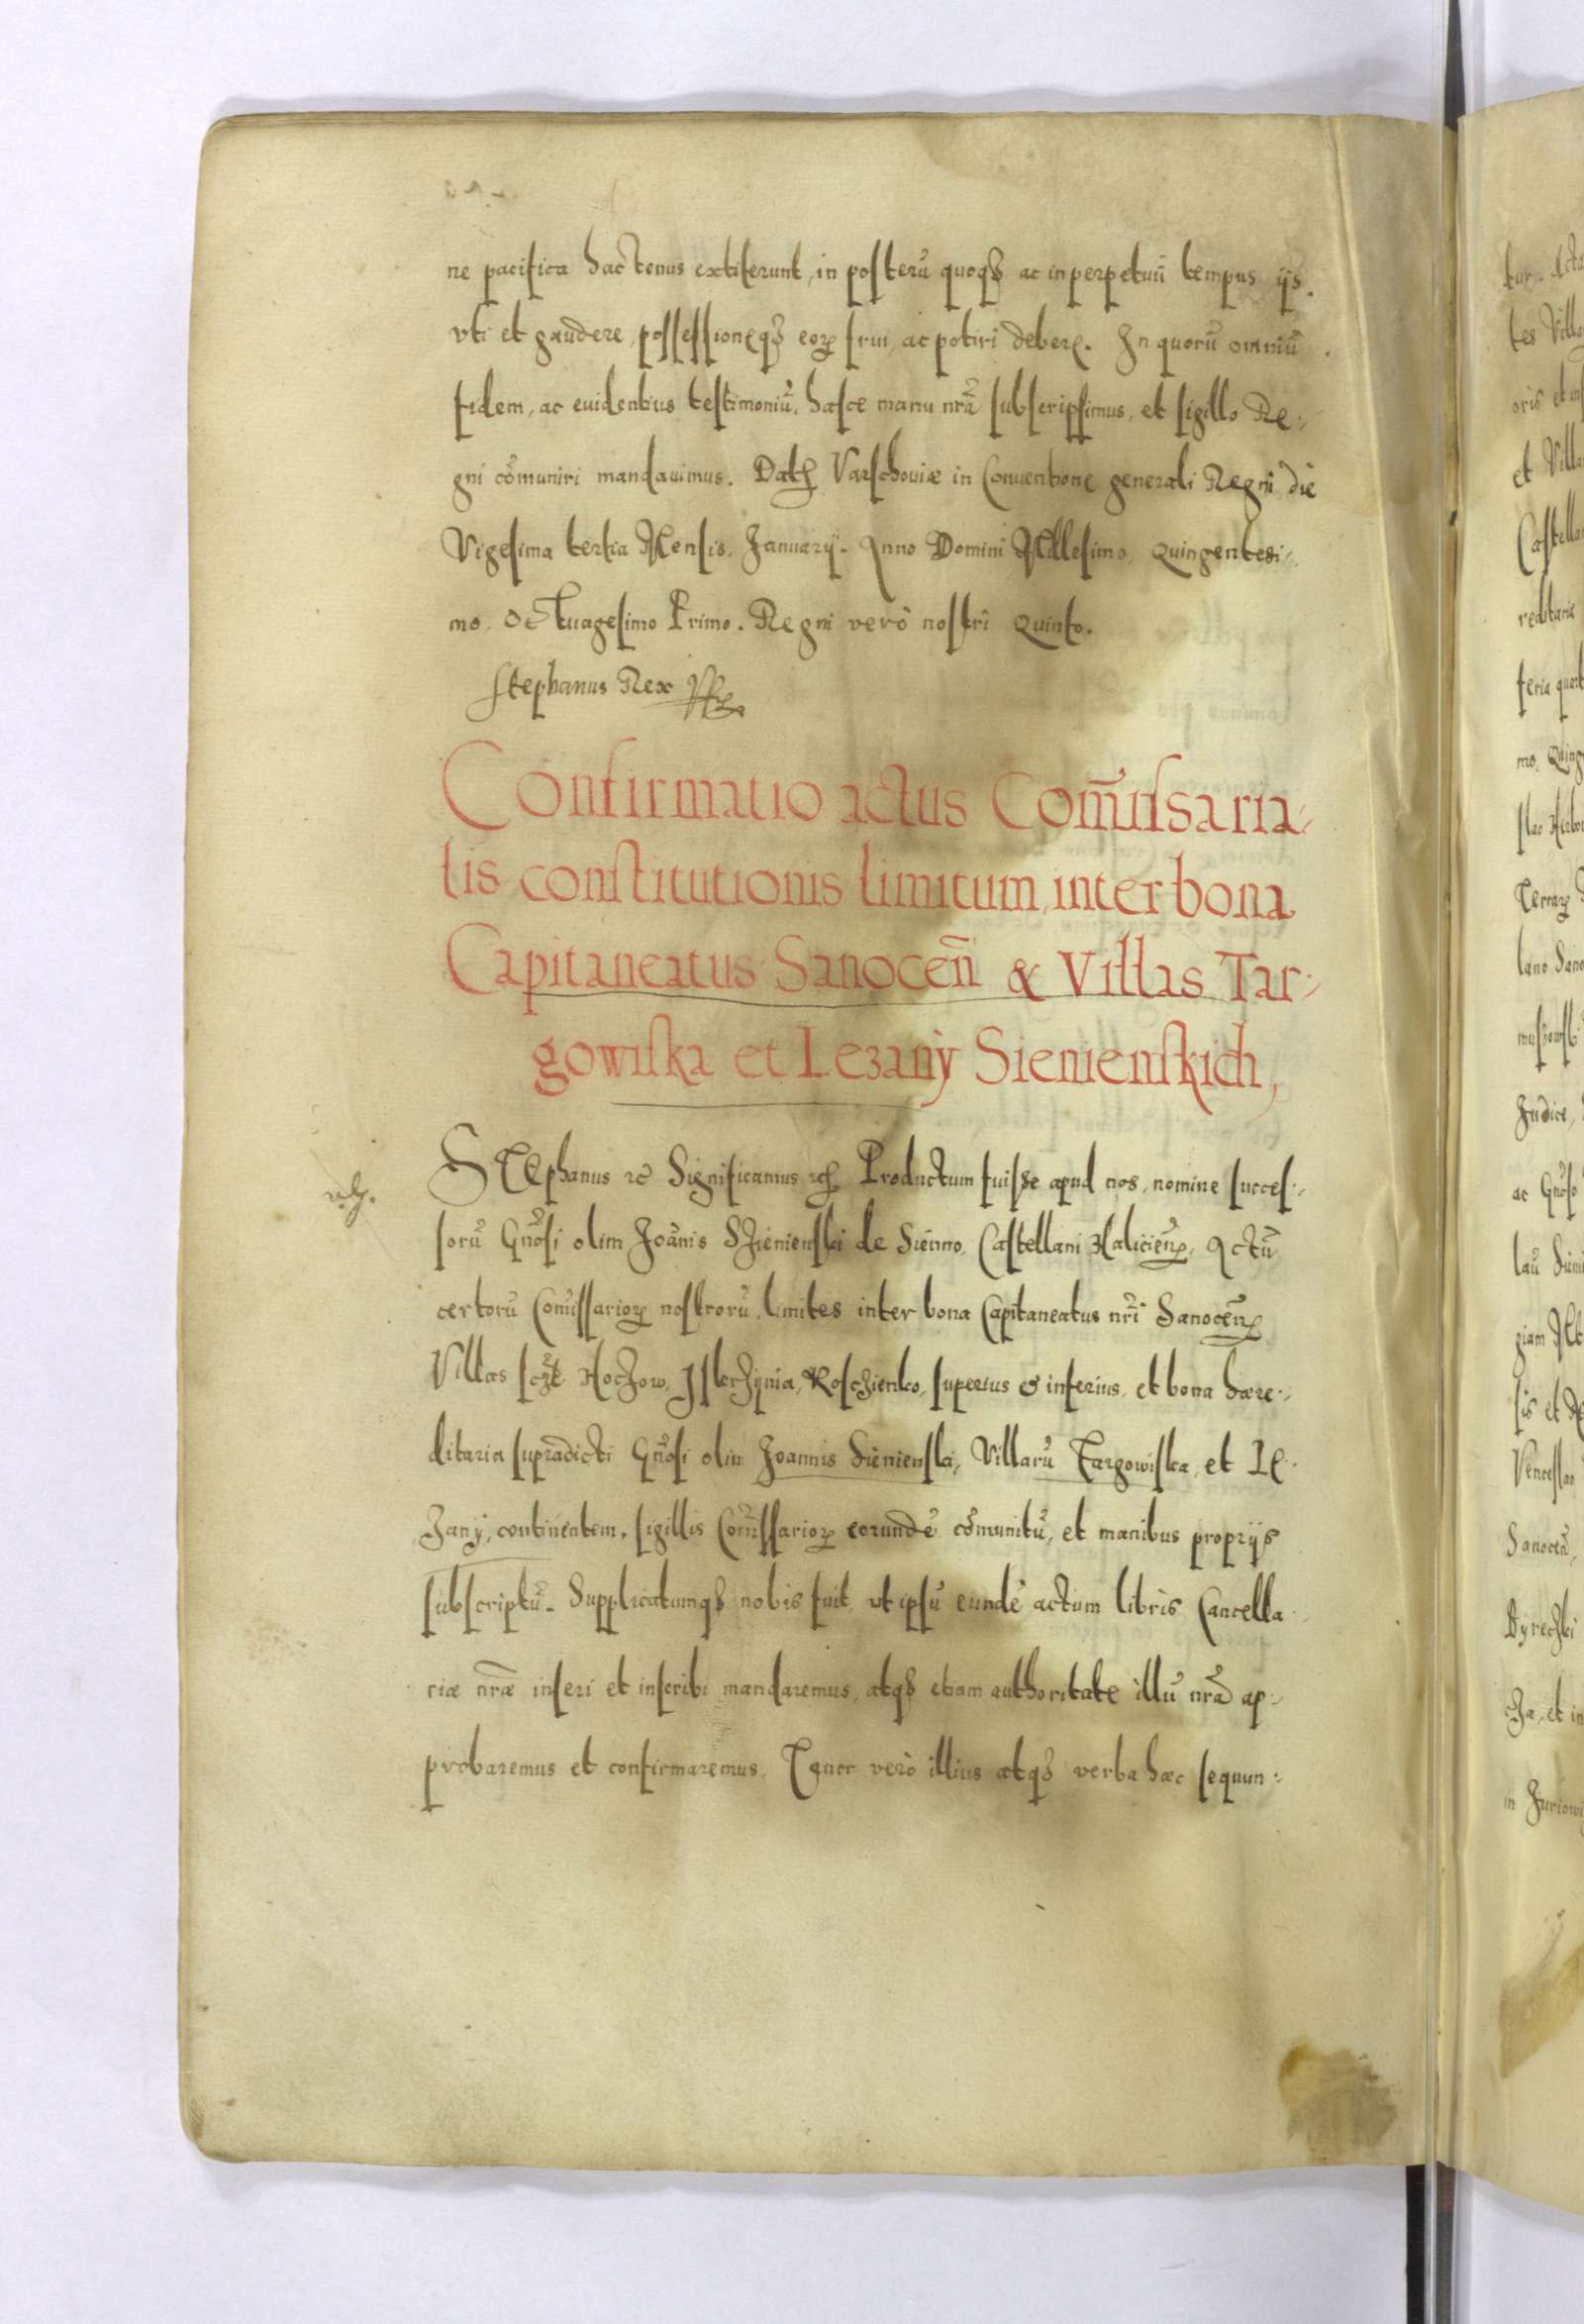 ne pacifica hactenus extiterunt, in posterũ quoqȝ ac in perpetuũ tempus ijs.
vti et gaudere, possessioneqȝ eoꝝ frui, ac potiri debere. In quorũ omniũ
fidem, ac euidentius testimoniũ, hasce manu nr̃a subscripsimus, et sigillo Re-
gni cõmuniri mandauimus. Datꝭ Varschouiæ in Conuentione generali Regni die
Vigesima tertia Mensis Januarij. Anno Domini Millesimo, Quingentesi-
mo, Octuagesimo Primo. Regni verò nostri Quinto.
Stephanus Rex
Confirmatio actus Com̃issaria-
lis constitutionis limitum, inter bona
Capitaneatus Sanoceñ & Villas Tar-
gowiska et Lezanÿ Sienienskich,
STephanus ꝛc̃ Significamus ꝛcꝭ Productum fuisse apud nos, nomine succes-
sorũ Gñosi olim Joãnis SZienienski de Sienno, Castellani Halicieñ, Actũ
certorũ Com̃issarioꝝ nostrorũ, limites inter bona Capitaneatus nr̃i Sanoceñ
Villas sczt̃ HoczZow, JskrZÿnia, Koschienko, superius & inferius, et bona hære-
ditaria supradicti Gñosi olim Joannis Sienienski, Villarũ Targowiska, et Le-
Zanÿ, continentem, sigillis Com̃issarioꝝ eorundẽ cõmunitũ, et manibus proprijs
subscriptũ. Supplicatumqȝ nobis fuit, vt ipsũ eundẽ actum libris Cancella-
riæ nr̃æ inseri et inscribi mandaremus, atqȝ etiam authoritate illũ nr̃a ap-
probaremus et confirmaremus. Tenor verò illius atqȝ verba hæc sequun-
tur.
tes Villa
oris et
et Villa
Castella
reditarie
feria quart
mo, Quing
slao Herbor
Terraꝝ
lano Sano
Judice,
ac Gñoso
giam
sis et De
Venceslao
Sanoceñ,
cZa, et in
in